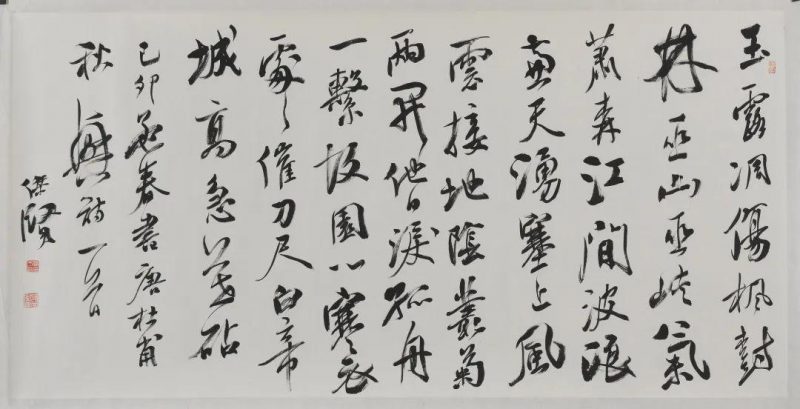 玉露凋傷楓樹
林巫山巫峽氣
蕭森江間波浪
兼天湧塞上風
雲接地陰叢菊
兩開他日淚孤舟
一繫故園心寒衣
處々催刀尺白帝
城高急暮砧
己卯春書唐杜甫
秋興詩一首
賢